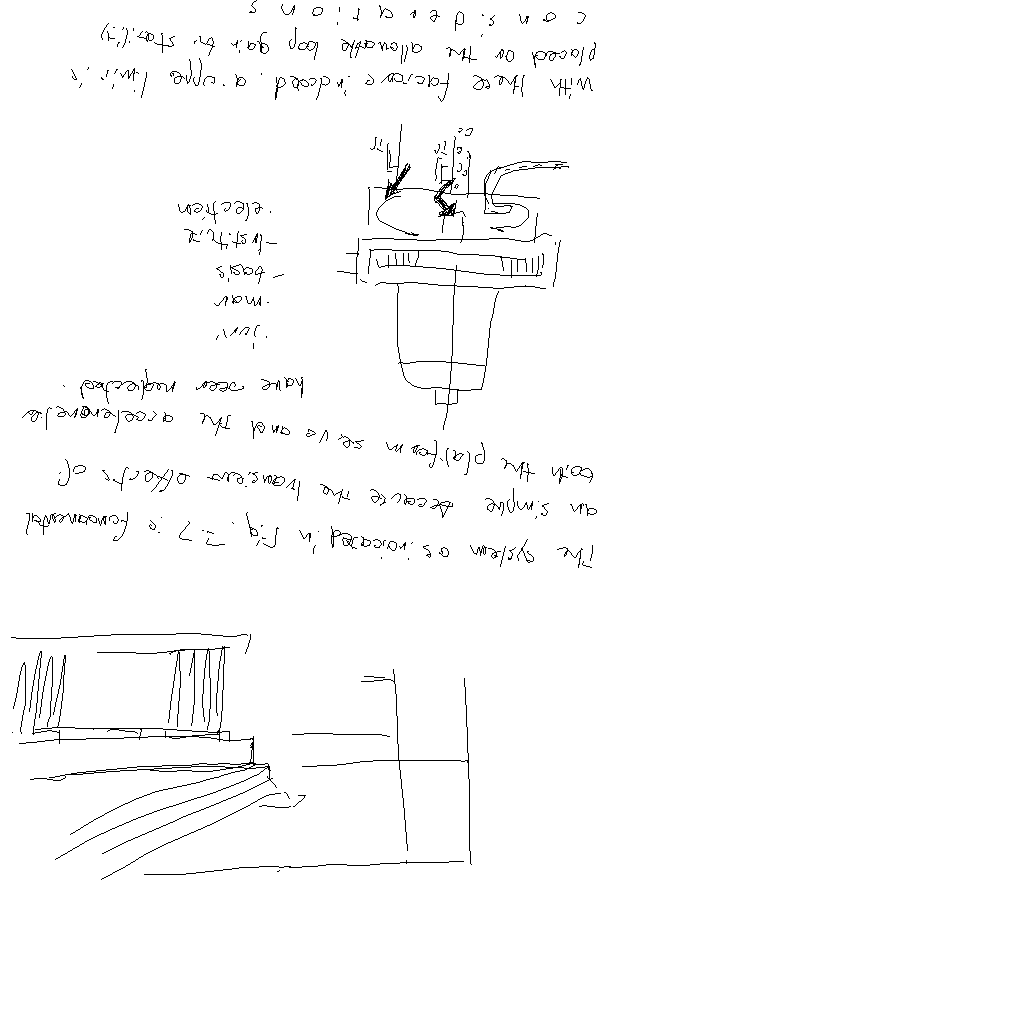 The system as indicated in Fig. 7-7 is fundamental
an simple because the transient effects of
with the platform servo and the accelerometer
have been neglected.
jury
mar
- basis
- institut
election
with these factors indeed. a upper limit is
placed on the allowable loop gain by stability
considerations